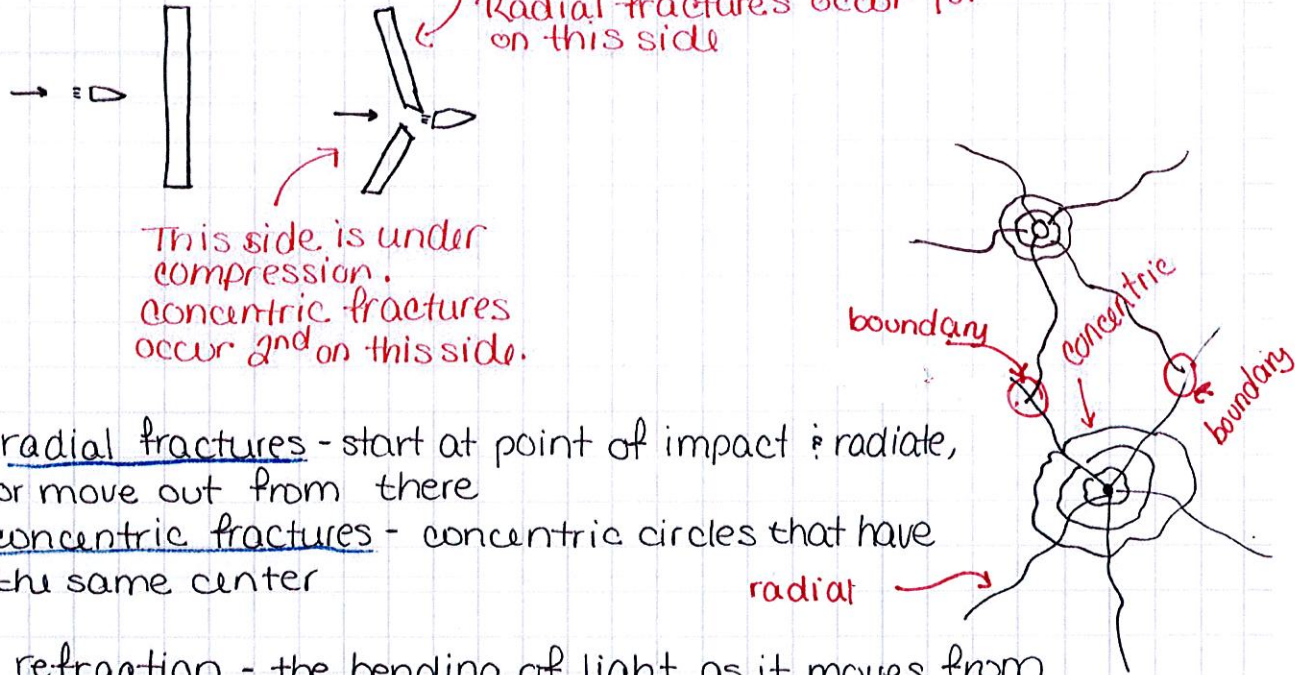 Radial fractures occur
on this side
This side is under
compression.
concentric fractures
occur 2nd on this side.
boundary
concentric
boundary
radial fractures - start at point of impact & radiate,
or move out from there
concentric fractures - concentric circles that have
the same center
radial
refraction - the bending of light as it moves from